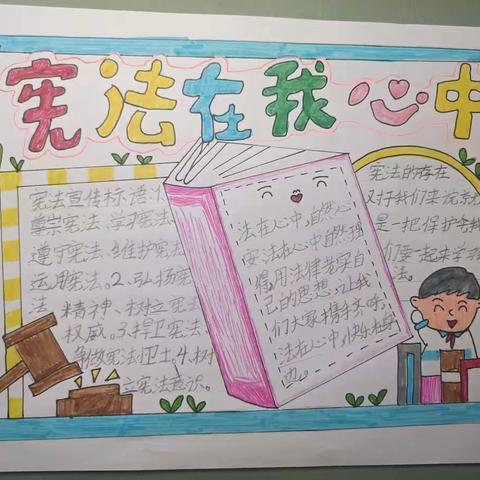 宪法在我心中
宪法宣传标语:1.
尊崇宪法、学习宪法
遵守宪法、维护宪法
运用宪法。2、弘扬宪
法 精神、树立宪法
权威。3.捍卫宪法、
争做宪法卫士。4.树
立宪法意识。
法在心中,自然心
安法在心中自然理
得,用法律老实自
己的思想,让我
们大家携手齐呼
法在心中,快乐在身
边。
宪法的存在
对于我们来说就
是一把保护伞我
们要一起来学习
法。